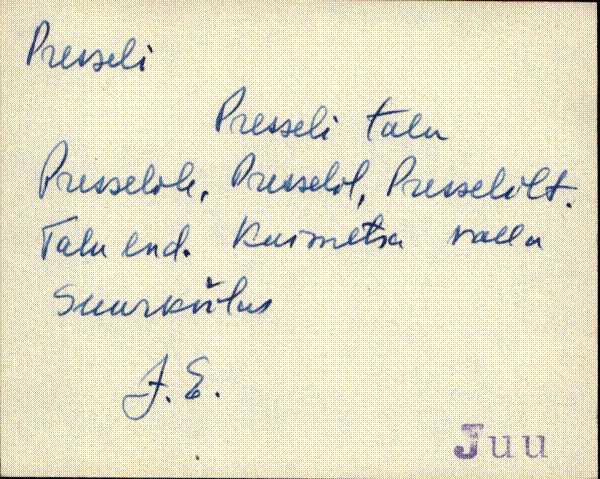 Presseli
Presseli talu
Presselile, Presselil, Presselilt.
Talu end. Kuimetsa valla
Suurkülas
J. E.
Juu